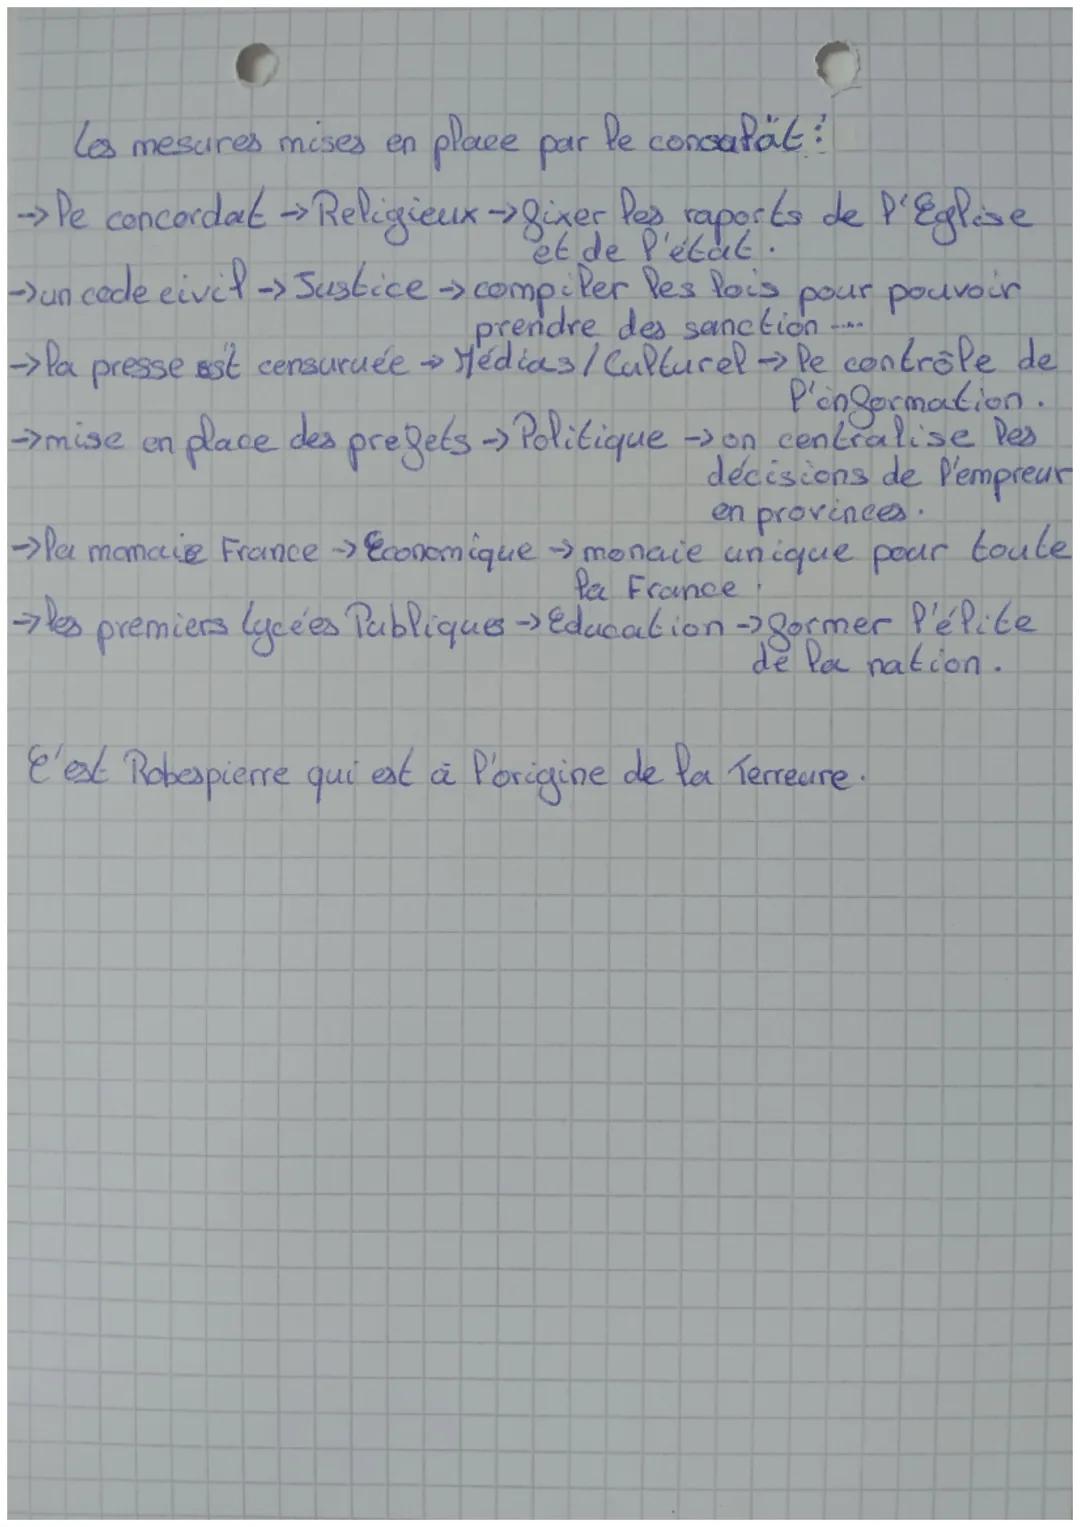 Les mesures mises en place par le consulât :
→ le concordat → Religieux → fixer les raports de l'Eglise
et de l'état.
→ un code civil → Justice → compiler les lois pour pouvoir
prendre des sanction ....
→ la presse est censuruée → Médias / Culturel → le contrôle de
l'information.
→ mise en place des prefets → Politique → on centralise les
décisions de l'empreur
en provinces.
→ la monaie France → Economique → monaie unique pour toute
la France.
→ les premiers lycées Publiques → Education → former l'élite
de la nation.
C'est Robespierre qui est à l'origine de la Terreure.